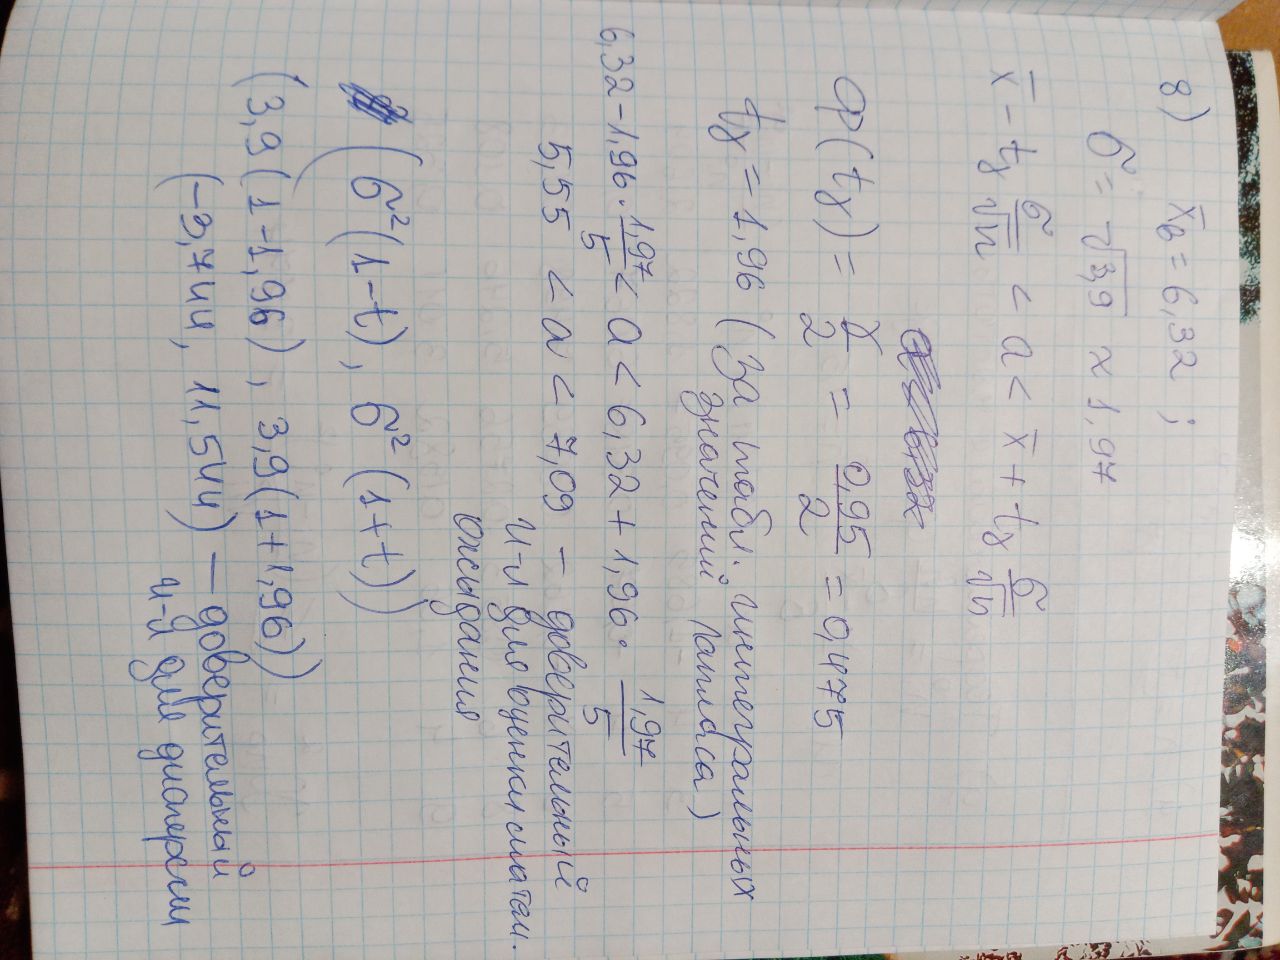 8) x̄в = 6,32 ;
σ = √3,9 ≈ 1,97
x̄ - tγ σ/√n < a < x̄ + tγ σ/√n
Ф(tγ) = γ/2 = 0,95/2 = 0,475
tγ = 1,96 (за табл. интегральных
значений Лапласа)
6,32 - 1,96 · 1,97/5 < a < 6,32 + 1,96 · 1,97/5
5,55 < a < 7,09 — доверительный
и-л для оценки матем.
ожыдания
(σ²(1-t), σ²(1+t))
(3,9(1-1,96), 3,9(1+1,96))
(-3,744, 11,544) — доверительный
и-л для дисперсии